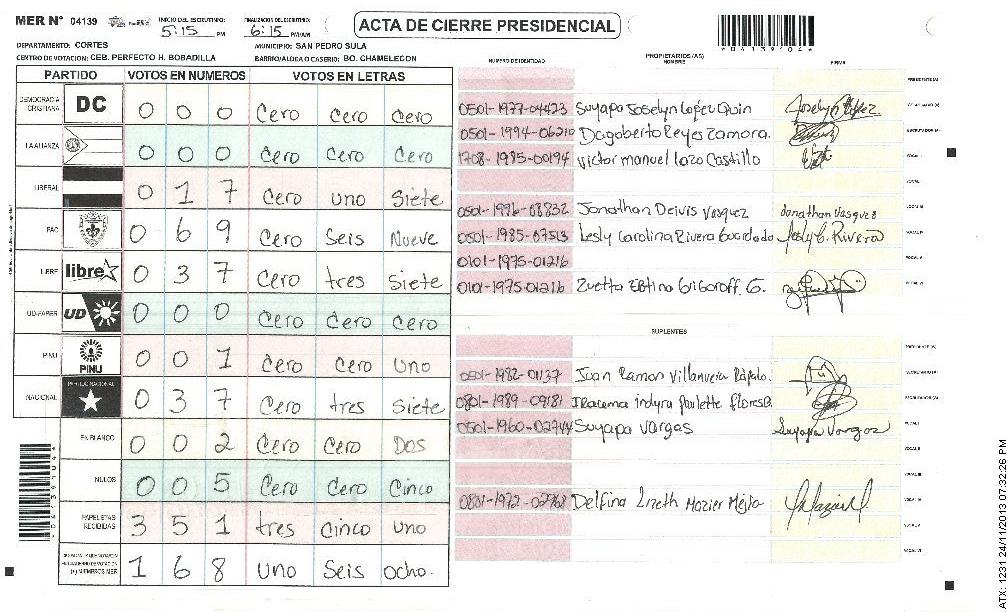 MER Nº 04139 INICIO DEL ESCRUTINIO: 5:15 PM FINALIZACION DEL ESCRUTINIO: 6:15 PM/AM ACTA DE CIERRE PRESIDENCIAL *04139104*
DEPARTAMENTO: CORTES MUNICIPIO: SAN PEDRO SULA
CENTRO DE VOTACION: CEB. PERFECTO H. BOBADILLA BARRIO/ALDEA O CASERIO: BO. CHAMELECON
PARTIDO VOTOS EN NUMEROS VOTOS EN LETRAS
DEMOCRACIA CRISTIANA DC 0 0 0 Cero Cero Cero
LA ALIANZA 0 0 0 Cero Cero Cero
LIBERAL 0 1 7 Cero uno Siete
PAC 0 6 9 Cero Seis Nueve
LIBRE libre 0 3 7 Cero tres Siete
UD-FAPER UD 0 0 0 Cero Cero Cero
PINU PINU 0 0 1 Cero Cero Uno
NACIONAL PARTIDO NACIONAL 0 3 7 Cero tres Siete
EN BLANCO 0 0 2 Cero Cero Dos
NULOS 0 0 5 Cero Cero Cinco
PAPELETAS RECIBIDAS 3 5 1 tres Cinco uno
1 6 8 uno Seis ocho.
*04139104*
PROPIETARIOS (AS)
NUMERO DE IDENTIDAD NOMBRE FIRMA
PRESIDENTE (A)
0501-1977-04423 Suyapa Joselyn Lopez Quin
0501-1994-06210 Dagoberto Reyes Zamora. ESCRUTADOR (A)
1708-1985-00194 Victor manuel Lazo Castillo VOCAL I
0501-1996-08832 Jonathan Deivis Vasquez Jonathan Vasquez
0501-1985-07513 Lesly Carolina Rivera Guardado Lesly C. Rivera
0101-1975-01216
0101-1975-01216
SUPLENTES
0501-1982-01137 Juan Ramon Villanueva
0801-1989-09181
0501-1960-02744 Suyapa Vargas Suyapa Vargas
0801-1972- Delfina Lizeth Mazier Mejia
ATX: 1231 24/11/2013 07:32:26 PM